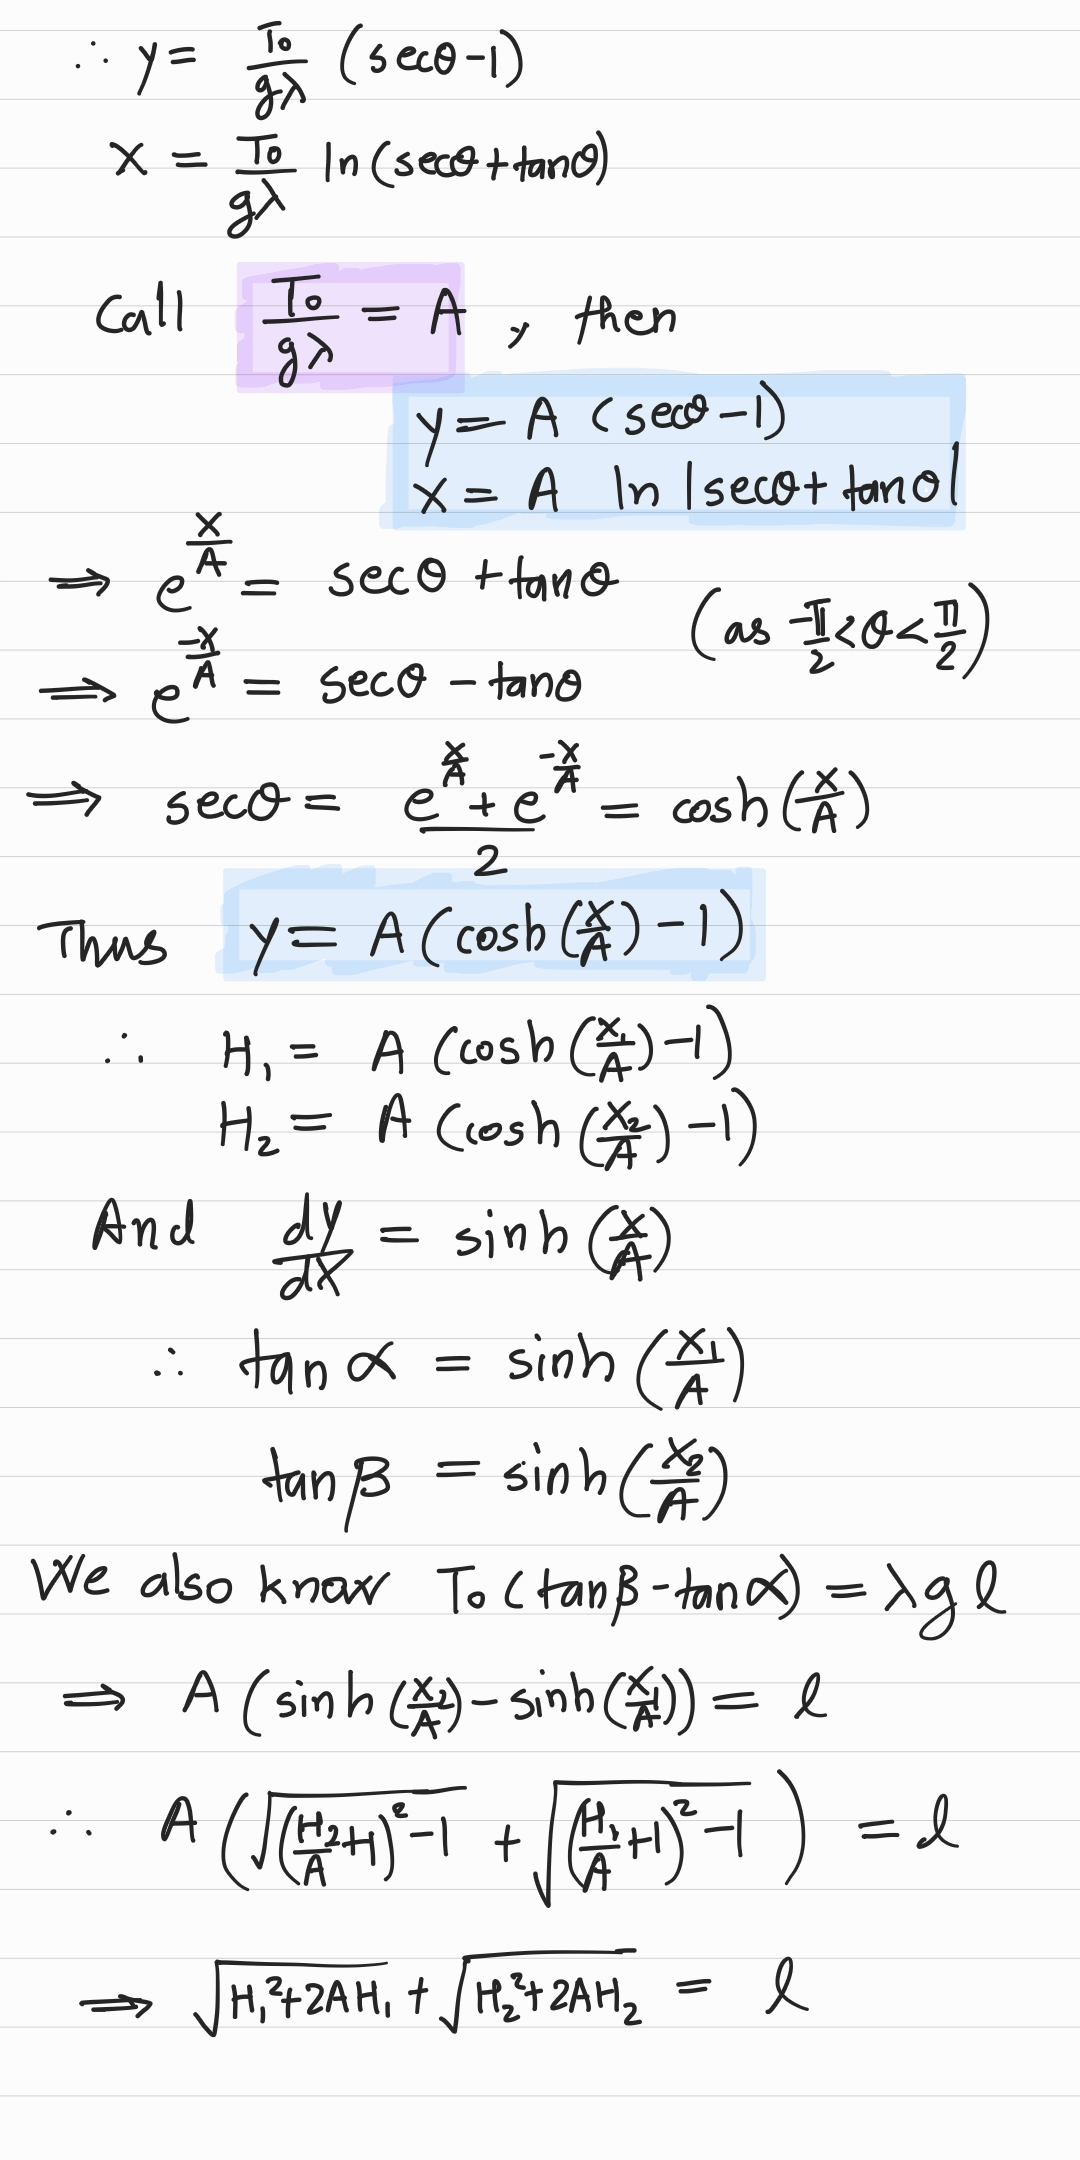 ∴ y = T₀/gλ (secθ - 1)
x = T₀/gλ ln(secθ + tanθ)
Call T₀/gλ = A , then
y = A (secθ - 1)
x = A ln |secθ + tanθ|
⟹ e^(x/A) = secθ + tanθ
(as -π/2 < θ < π/2)
⟹ e^(-x/A) = secθ - tanθ
⟹ secθ = (e^(x/A) + e^(-x/A))/2 = cosh(x/A)
Thus y = A (cosh(x/A) - 1)
∴ H₁ = A (cosh(x₁/A) - 1)
H₂ = A (cosh(x₂/A) - 1)
And dy/dx = sinh(x/A)
∴ tan α = sinh(x₁/A)
tan β = sinh(x₂/A)
We also know T₀ (tanβ - tanα) = λgl
⟹ A (sinh(x₂/A) - sinh(x₁/A)) = l
∴ A (√((H₂/A + 1)² - 1) + √((H₁/A + 1)² - 1)) = l
⟹ √(H₁² + 2AH₁) + √(H₂² + 2AH₂) = l